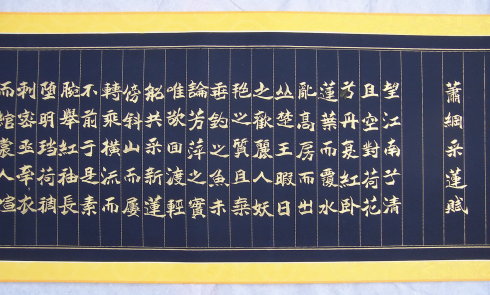 蕭綱采蓮賦
望江南兮清
且空對荷花
兮丹复紅卧
蓮葉而覆水
亂高房而出
丛楚王暇日
之歡麗人妖
艳之質且棄
垂釣之魚未
論芳萍之實
唯欲回渡輕
船共采新蓮
傍斜山而屢
轉乘橫流而
不前于是素
腕舉紅袖長
墮明珰荷稠
刺密亟牽衣
而綰裳人喧